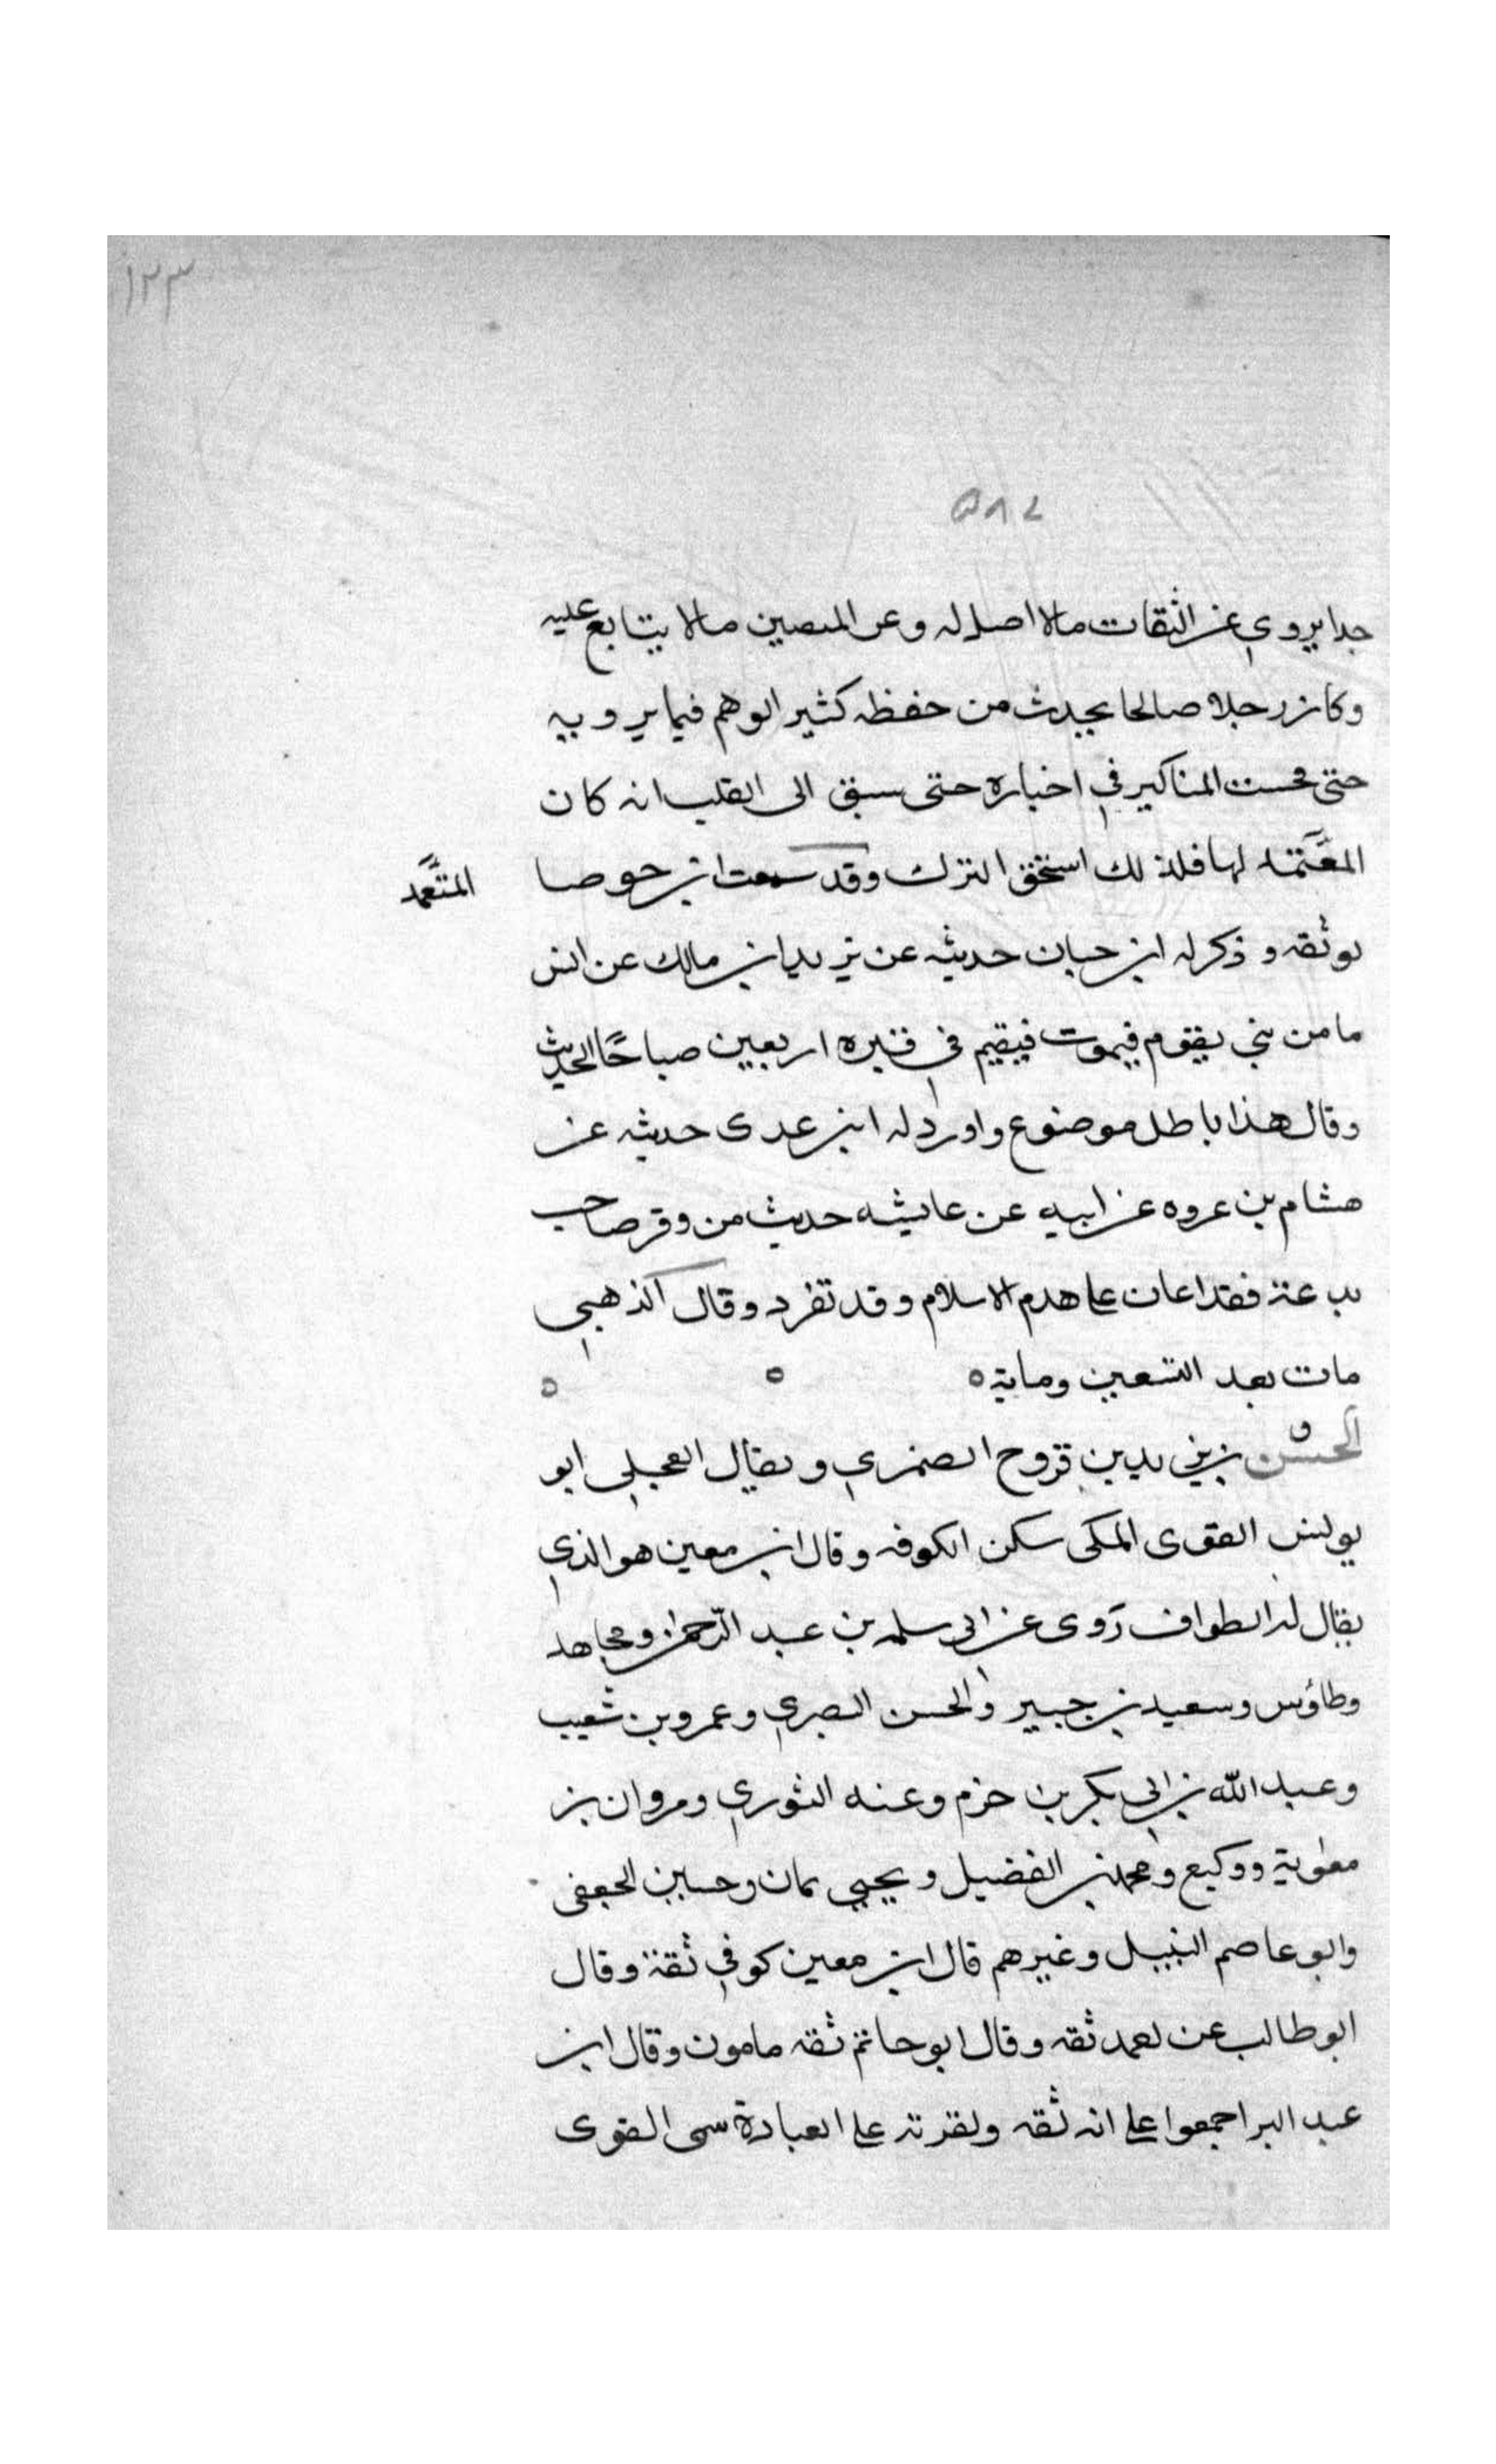 ١٢٣
٥٨٢
جدا يروي عن الثقات مالا اصل له وعن المتقنين مالا يتابع عليه
وكان رجلا صالحا يحدث من حفظه كثير الوهم فيما يرويه
حتى فحست المناكير في اخباره حتى سبق الى القلب انه كان
المعتمد لها فلذلك استحق الترك وقد سمعت ابن حوصا
المتعمد
يوثقه وذكر له ابن حبان حديثه عن يزيد ابن مالك عن انس
ما من نبي يقوم فيموت فيقيم في قبره اربعين صباحًا الحديث
وقال هذا باطل موضوع واورد له ابن عدى حديثه عن
هشام بن عروه عن ابيه عن عايشه حديث من وقر صاحب
بدعة فقد اعان على هدم الاسلام وقد تفرد وقال الذهبي
مات بعد التسعين وماية ٥ ٥ ٥
الحسن بن يزيد بن فروخ الضمري ويقال العجلي ابو
يونس القوى المكى سكن الكوفه وقال ابن معين هو الذي
يقال له الطواف رَوى عن ابى سلمه بن عبد الرّحمن ومجاهد
وطاؤس وسعيد بن جبير والحسن البصري وعمرو بن شعيب
وعبد الله بن ابي بكر بن حزم وعنه الثوري ومروان بن
معوية ووكيع ومحمد بن الفضيل ويحيي يمان وحسين الجعفى
وابو عاصم النبيل وغيرهم قال ابن معين كوفي ثقة وقال
ابو طالب عن احمد ثقه وقال ابو حاتم ثقه مامون وقال ابن
عبد البر اجمعوا على انه ثقه ولقوته على العبادة سمى القوى